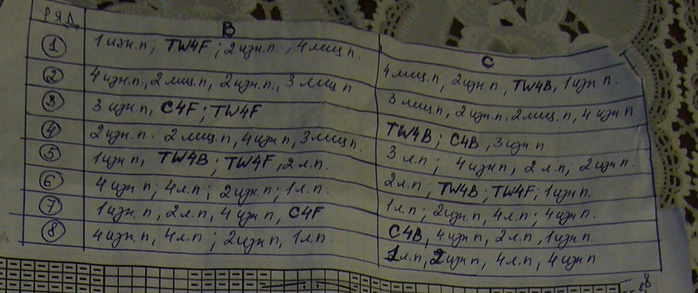 РЯД B C
1 1 изн.п, TW4F; 2 изн.п, 4 лиц п. 4 лиц.п, 2 изн.п, TW4B, 1 изн п.
2 4 изн.п, 2 лиц.п, 2 изн.п., 3 лиц п 3 лиц.п, 2 изн.п, 2 лиц.п, 4 изн п
3 3 изн.п, C4F; TW4F TW4B; C4B, 3 изн п
4 2 изн.п. 2 лиц.п, 4 изн.п, 3 лиц п. 3 л.п; 4 изн п, 2 л.п, 2 изн п.
5 1 изн п, TW4B; TW4F, 2 л.п. 2 л.п; TW4B; TW4F; 1 изн п.
6 4 изн п; 4 л.п; 2 изн.п; 1 л.п. 1 л.п; 2 изн п, 4 л.п; 4 изн п.
7 1 изн.п, 2 л.п, 4 изн п, C4F C4B, 4 изн п, 2 л.п, 1 изн п.
8 4 изн.п, 4 л.п; 2 изн п, 1 л.п. 1 л.п, 2 изн п, 4 л.п, 4 изн п